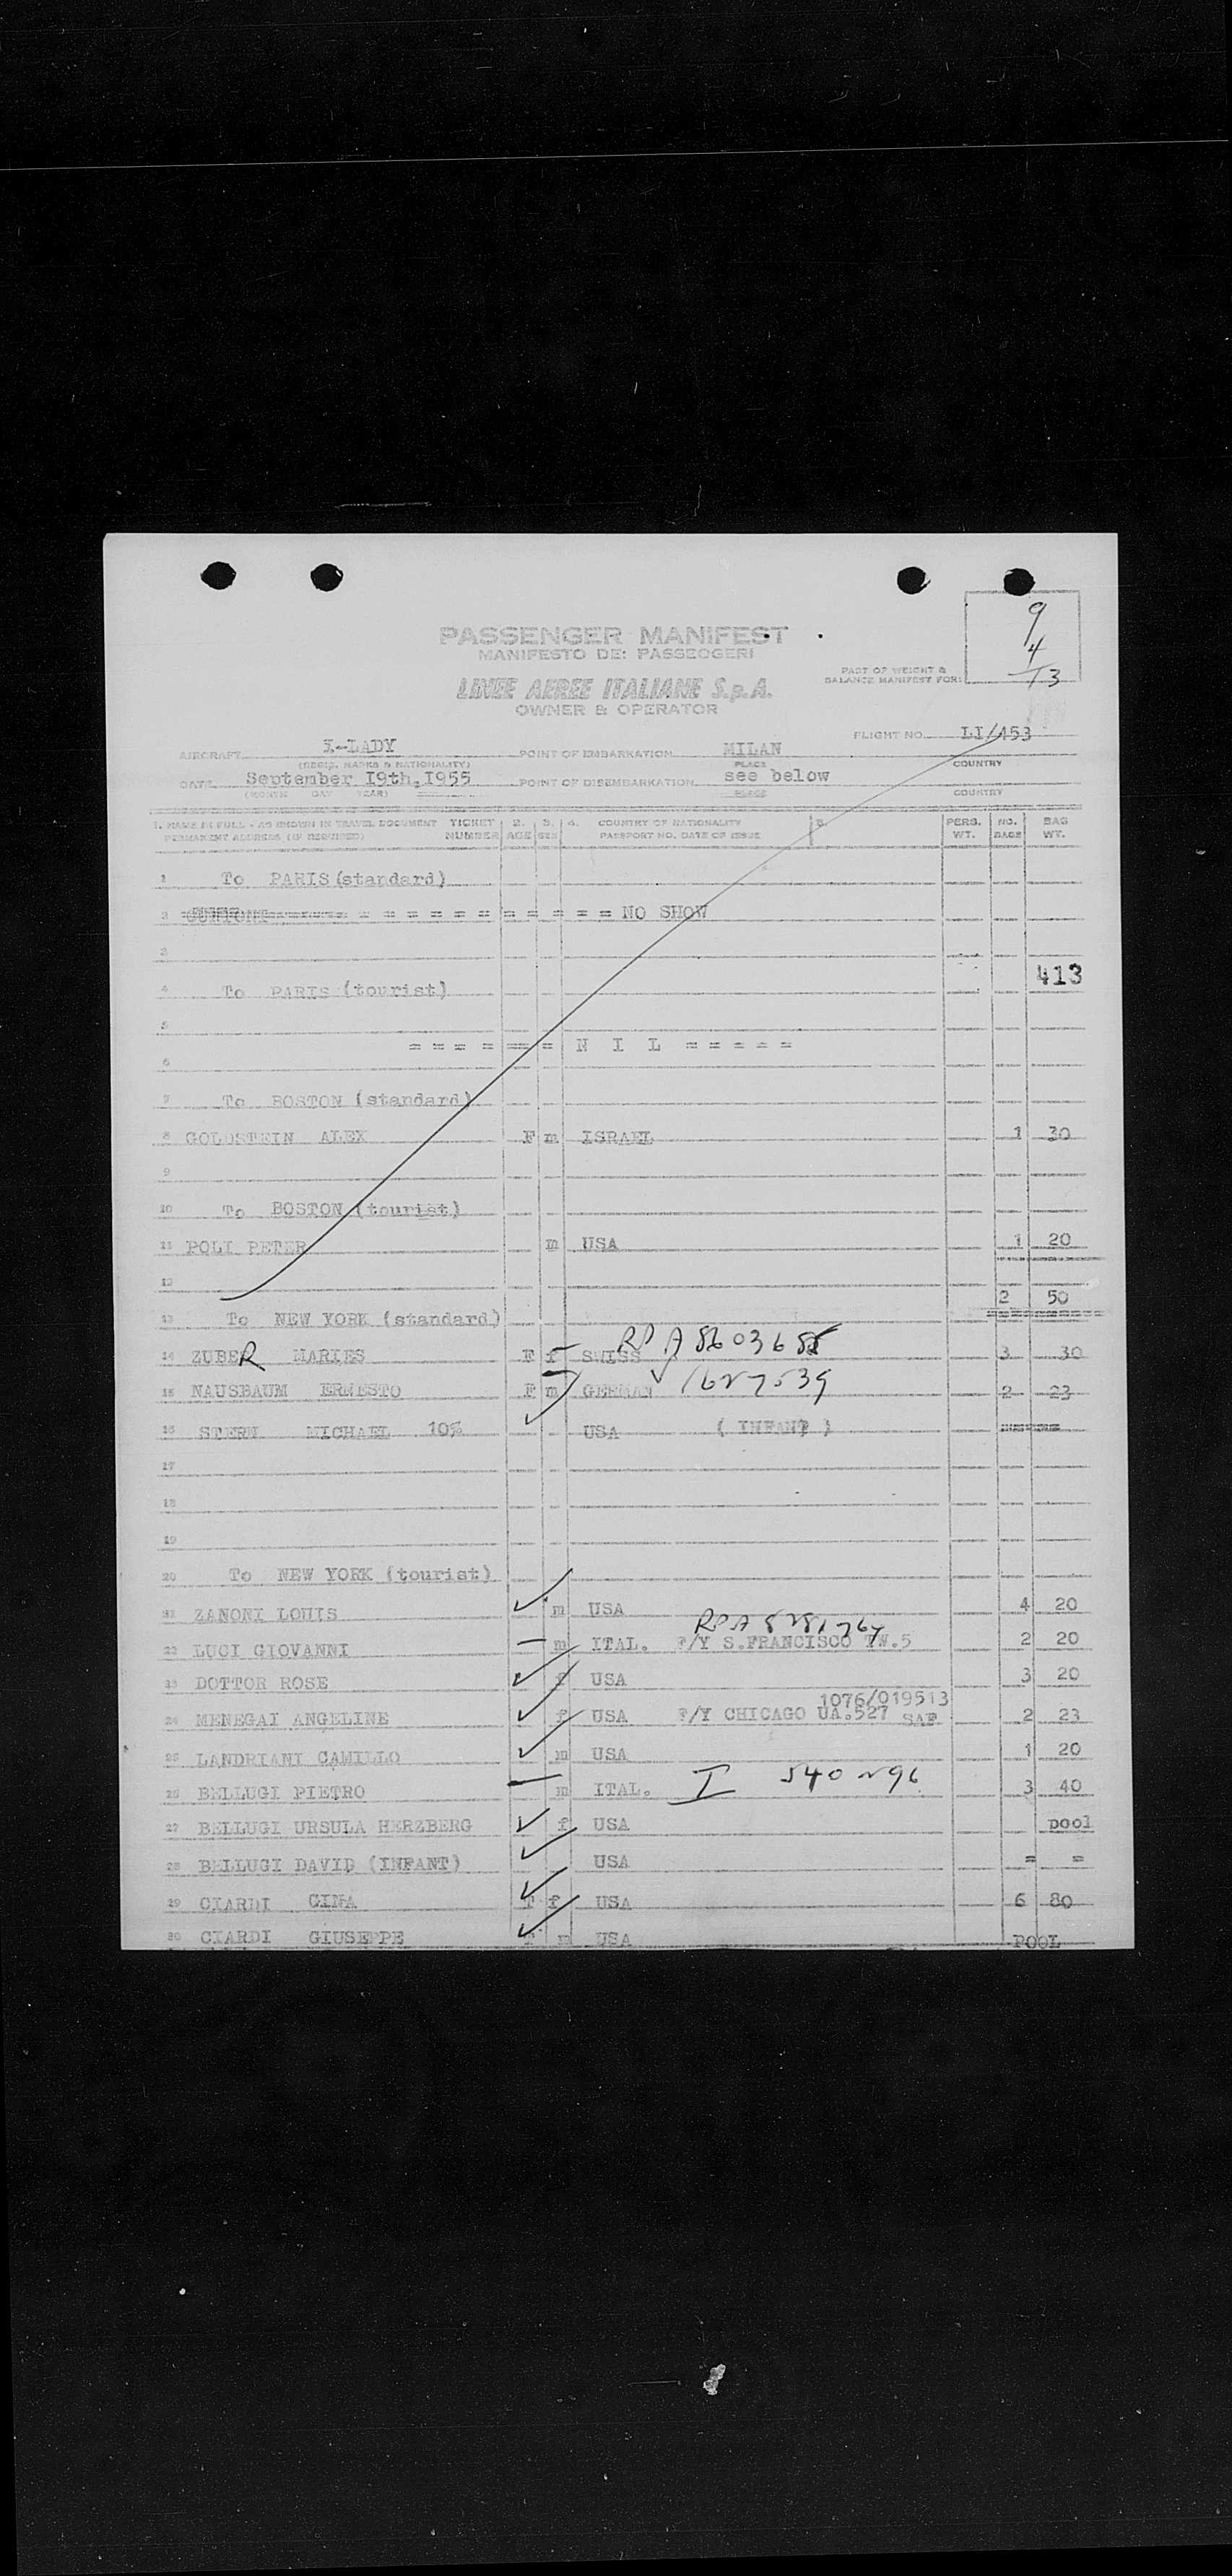 9
4
13
PASSENGER MANIFEST
MANIFESTO DEI PASSEGGERI
PART OF WEIGHT &
BALANCE MANIFEST FOR:
LINEE AEREE ITALIANE S.p.A.
OWNER & OPERATOR
FLIGHT NO. LI/453
AIRCRAFT I-LADY POINT OF EMBARKATION MILAN
(REGIS. MARKS & NATIONALITY) PLACE COUNTRY
DATE September I9th,I955 POINT OF DISEMBARKATION see below
(MONTH DAY YEAR) PLACE COUNTRY
1. NAME IN FULL - AS SHOWN IN TRAVEL DOCUMENT TICKET 2. 3. 4. COUNTRY OF NATIONALITY 5. PERS. NO. BAG
PERMANENT ADDRESS (IF REQUIRED) NUMBER AGE SEX PASSPORT NO. DATE OF ISSUE WT. BAGS WT.
1 To PARIS (standard)
2 = = = = = = = = = = = = NO SHOW
3
413
4 To PARIS (tourist)
5
= = = = = = = N I L = = = = =
6
7 To BOSTON (standard)
8 GOLDSTEIN ALEX F m ISRAEL 1 30
9
10 To BOSTON (tourist)
11 POLI PETER m USA 1 20
12
2 50
13 To NEW YORK (standard)
RP A 8603688
14 ZUBER MARIES F f SWISS 3 30
15 NAUSBAUM ERNESTO F m GERMAN 1627539 2 23
16 STERN MICHAEL 10% USA ( INFANT )
17
18
19
20 To NEW YORK (tourist)
21 ZANONI LOUIS m USA 4 20
RP A 8281764
22 LUCI GIOVANNI m ITAL. F/Y S.FRANCISCO TW.5 2 20
23 DOTTOR ROSE f USA 3 20
1076/019513
24 MENEGAI ANGELINE f USA F/Y CHICAGO UA.527 SAF 2 23
25 LANDRIANI CAMILLO m USA 1 20
26 BELLUGI PIETRO m ITAL. I 540296 3 40
27 BELLUGI URSULA HERZBERG f USA pool
28 BELLUGI DAVID (INFANT) USA = =
29 CIARDI GINA T f USA 6 80
30 CIARDI GIUSEPPE T m USA POOL